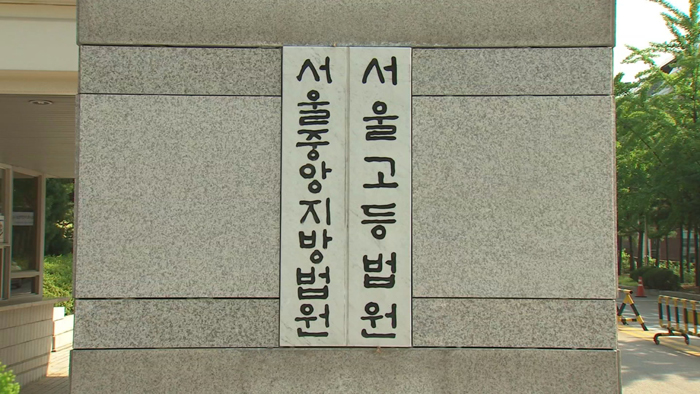 서울고등법원
서울중앙지방법원